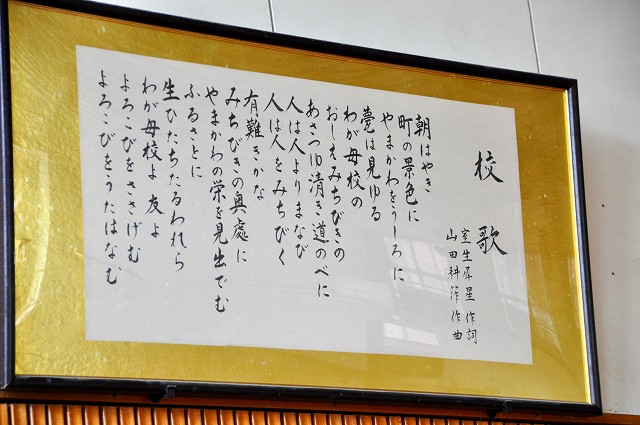 校歌
室生犀星 作詞
山田耕筰 作曲
朝はやき
町の景色に
やまかわをうしろに
甍は見ゆる
わが母校の
おしえみちびきの
あさつゆ清き道のべに
人は人よりまなび
人は人をみちびく
有難きかな
みちびきの奥處に
やまかわの栄を見出でむ
ふるさとに
生ひたちたるわれら
わが母校よ 友よ
よろこびをささげむ
よろこびをうたはなむ